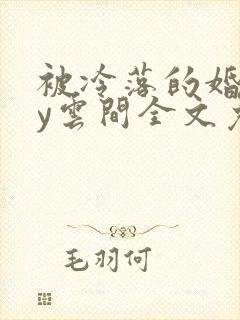 被冷落的婚
y雲間全文
毛羽何